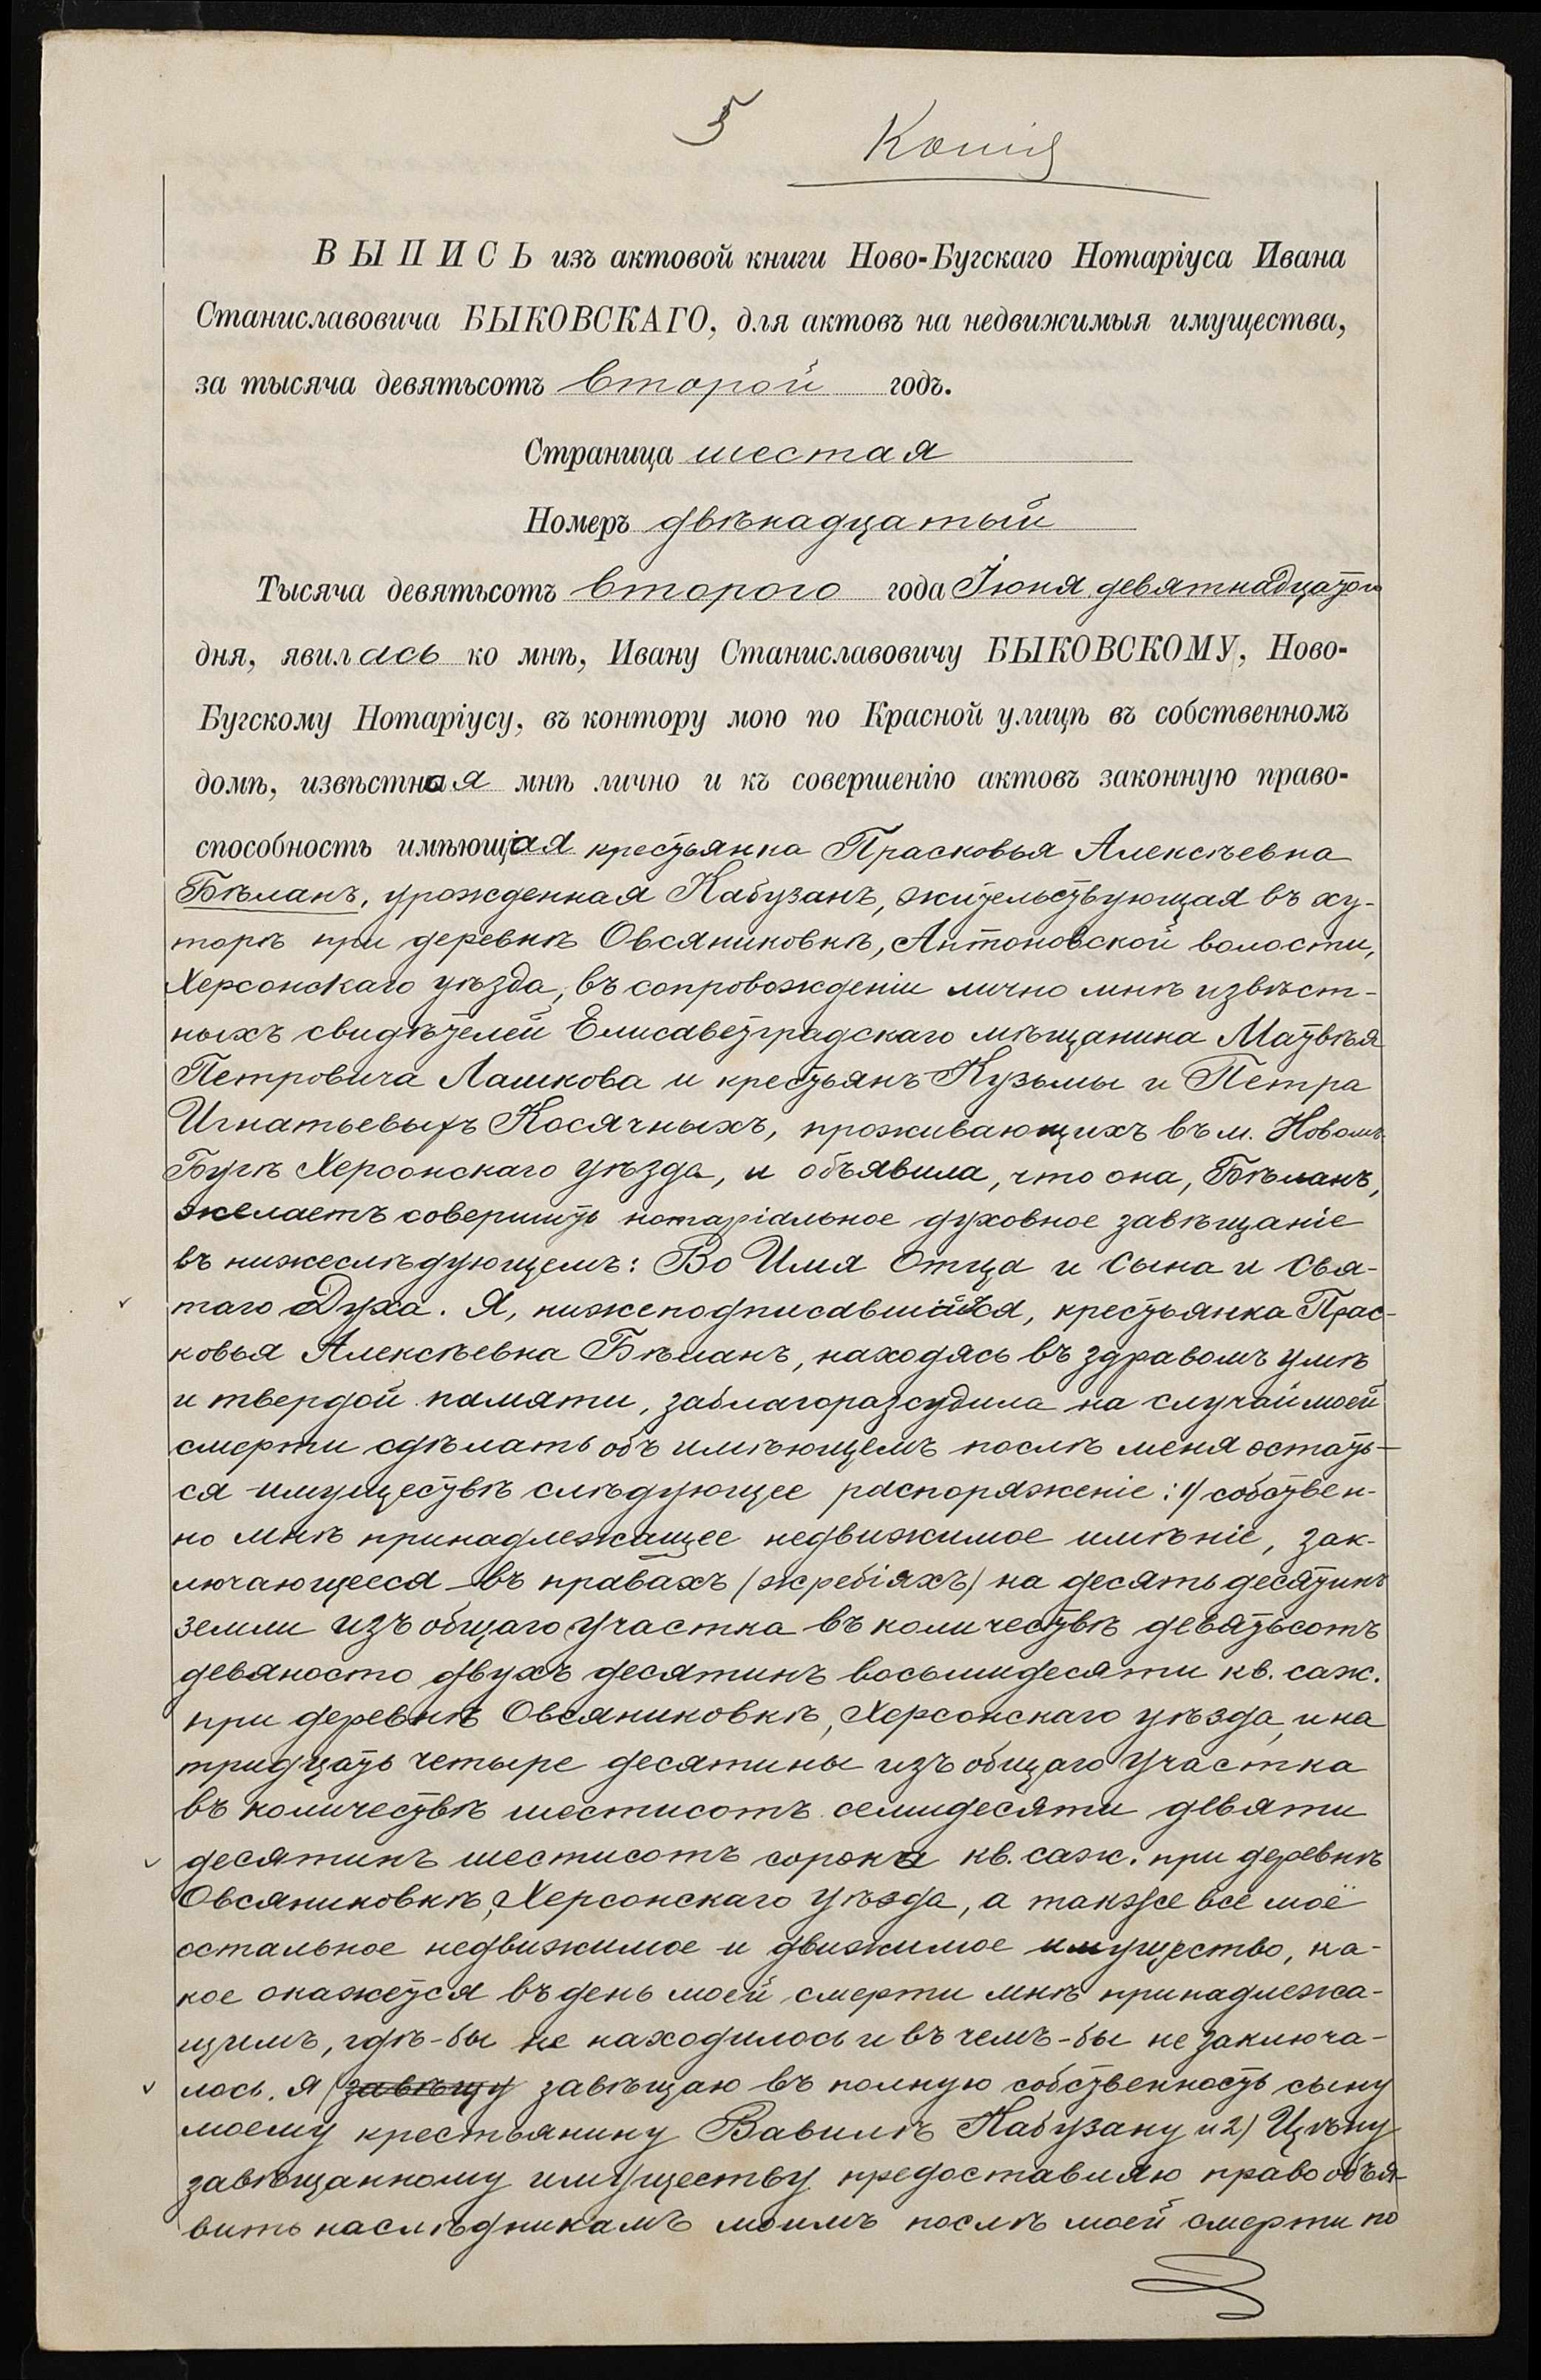 5
Копія
ВЫПИСЬ изъ актовой книги Ново-Бугскаго Нотаріуса Ивана
Станиславовича БЫКОВСКАГО, для актовъ на недвижимыя имущества,
за тысяча девятьсотъ второй годъ.
Страница шестая
Номеръ двѣнадцатый
Тысяча девятьсотъ второго года Іюня девятнадцатаго
дня, явилась ко мнѣ, Ивану Станиславовичу БЫКОВСКОМУ, Ново-
Бугскому Нотаріусу, въ контору мою по Красной улицѣ въ собственномъ
домѣ, извѣстная мнѣ лично и къ совершенію актовъ законную право-
способность имѣющая крестьянка Прасковья Алексѣевна
Бѣланъ, урожденная Кабузанъ, жительствующая въ ху-
торѣ при деревнѣ Овсяниковкѣ, Антоновской волости,
Херсонскаго уѣзда, въ сопровожденіи лично мнѣ извѣст-
ныхъ свидѣтелей Елисаветградскаго мѣщанина Матвѣя
Петровича Лашкова и крестьянъ Кузьмы и Петра
Игнатьевыхъ Косячныхъ, проживающихъ въ м. Новомъ-
Бугѣ Херсонскаго уѣзда, и объявила, что она, Бѣланъ,
желаетъ совершить нотаріальное духовное завѣщаніе
въ нижеслѣдующемъ: Во Имя Отца и Сына и Свя-
таго Духа. Я, нижеподписавшаяся, крестьянка Прас-
ковья Алексѣевна Бѣланъ, находясь въ здравомъ умѣ
и твердой памяти, заблагоразсудила на случай моей
смерти сдѣлать объ имѣющемъ послѣ меня остать-
ся имуществѣ слѣдующее распоряженіе: 1) собствен-
но мнѣ принадлежащее недвижимое имѣніе, зак-
лючающееся въ правахъ (жребіяхъ) на десять десятинъ
земли изъ общаго участка въ количествѣ девятьсотъ
девяносто двухъ десятинъ восьмидесяти кв. саж.
при деревнѣ Овсяниковкѣ, Херсонскаго уѣзда, и на
тридцать четыре десятины изъ общаго участка
въ количествѣ шестисотъ семидесяти девяти
десятинъ шестисотъ сорока кв. саж. при деревнѣ
Овсяниковкѣ, Херсонскаго уѣзда, а также всё моё
остальное недвижимое и движимое имущество, ка-
кое окажется въ день моей смерти мнѣ принадлежа-
щимъ, гдѣ-бы не находилось и въ чемъ-бы не заключа-
лось. Я завѣщу завѣщаю въ полную собственность сыну
моему крестьянину Вавилѣ Кабузану и 2) Цѣну
завѣщанному имуществу предоставляю право объя-
вить наслѣдникамъ моимъ послѣ моей смерти по